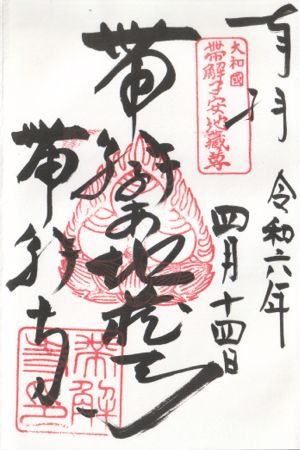 奉拝
令和六年
四月十四日
大和國
帯解子安地蔵尊
帯解子安地蔵尊
帯解寺
帯解寺印